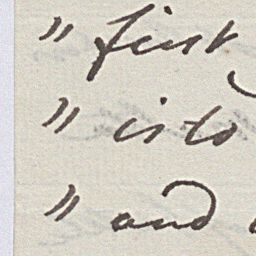 " first
" is to
" and